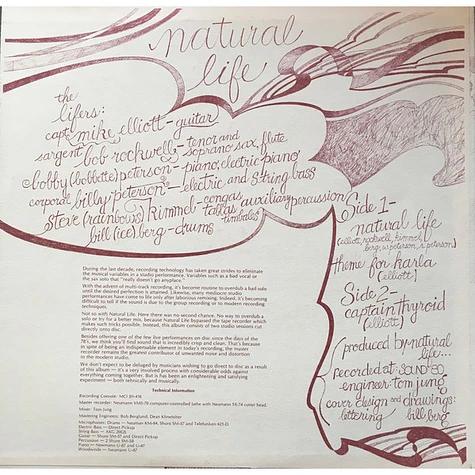 natural
life
the
lifers:
capt. mike elliott - guitar
sargent bob rockwell - tenor and
soprano sax, flute
bobby (bobbette) peterson - piano, electric piano
corporal billy peterson - electric and string bass
steve (rainbows) kimmel - congas,
tablas, auxiliary percussion
timbales
bill (ice) berg - drums
Side 1 -
natural life
(elliott, rockwell, kimmel,
berg, b. peterson, r. peterson)
theme for karla
(elliott)
Side 2 -
captain thyroid
(elliott)
produced by natural
life...
recorded at SOUND 80
engineer - tom jung
cover design and drawings:
lettering bill berg
During the last decade, recording technology has taken great strides to eliminate
the musical variables in a studio performance. Variables such as a bad vocal or
the sax solo that "really doesn't go anyplace.
With the advent of multi-track recording, it's become routine to overdub a bad solo
until the desired perfection is attained. Likewise, many mediocre studio
performances have come to life only after laborious remixing. Indeed, it's becoming
difficult to tell if the sound is due to the group recording or to modern recording
techniques.
Not so with Natural Life. Here there was no second chance. No way to overdub a
solo or try for a better mix, because Natural Life bypassed the tape recorder which
makes such tricks possible. Instead, this album consists of two studio sessions cut
directly onto disc.
Besides offering one of the few live performances on disc since the days of the
78's, we think you'll find sound that is incredibly crisp and clean. That's because
in spite of being an indispensable element in today's recording, the master
recorder remains the greatest contributor of unwanted noise and distortion
in the modern studio.
We don't expect to be deluged by musicians wishing to go direct to disc as a result
of this album — it's a very involved process with considerable odds against
everything coming together. But it has been an enlightening and satisfying
experiment — both tehnically and musically.
Technical Information
Recording Console: MCI JH-416
Master recorder: Neumann VMS-70 computer-controlled lathe with Neumann SX-74 cutter head.
Mixer: Tom Jung
Mastering Engineers: Bob Berglund, Dean Klinefelter
Microphones: Drums — Neuman KM-84, Shure SM-57 and Telefunken
Electric Bass — Direct Pickup
String Bass — AKG
Guitar — Shure SM-57 and Direct Pickup
Percussion — 2 Shure SM-54
Piano — Newmann U-67 and U-47
Woodwinds — Neumann U-47